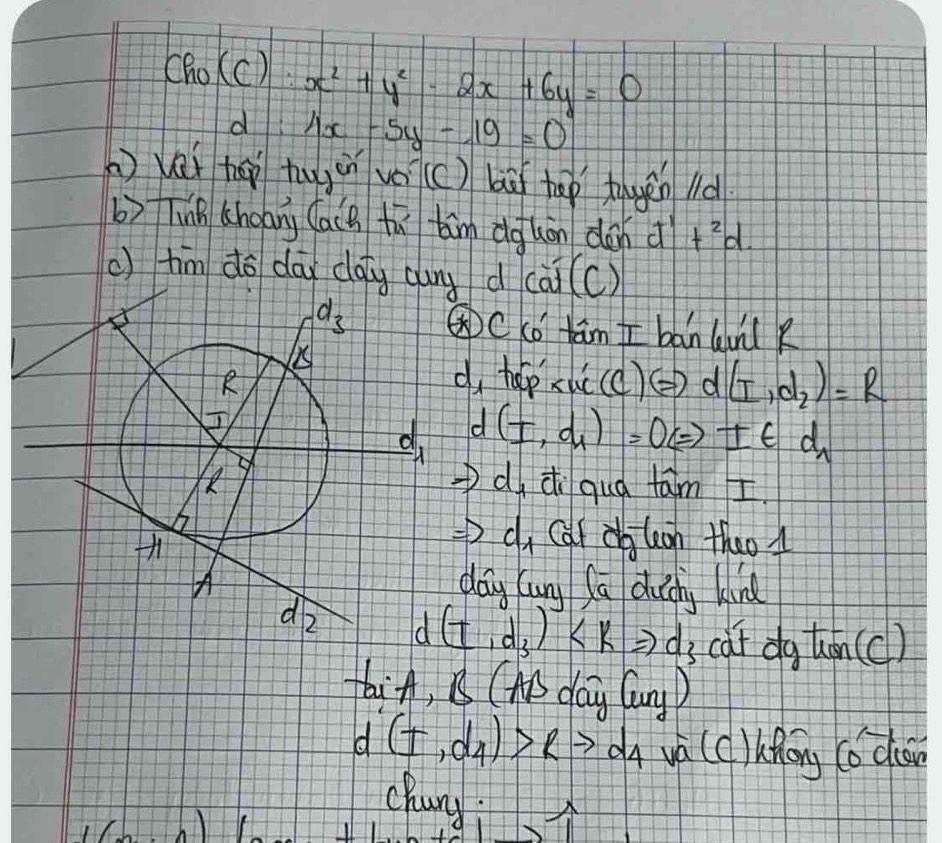 Cho (C) : x² + y² - 2x + 6y = 0
d : 1x - 5y - 19 = 0
a) Viết tiếp tuyến với (C) biết tiếp tuyến // d.
b) Tính khoảng cách từ tâm đg tròn đến d
c) tìm độ dài dây cung d cắt (C)
d₃
B
R
I
d₁
R
H
A
d₂
(*) C có tâm I bán kính R
d₁ tiếp xúc (C) <=> d(I, d₂) = R
d(I, d₁) = 0 <=> I ∈ d₁
=> d₁ đi qua tâm I.
=> d₁ cắt đg tròn theo 1
dây cung là đường kính
d(I, d₃) < R => d₃ cắt đg tròn (C)
tại A, B (AB dây cung)
d(I, d₄) > R => d₄ và (C) không có điểm
chung.